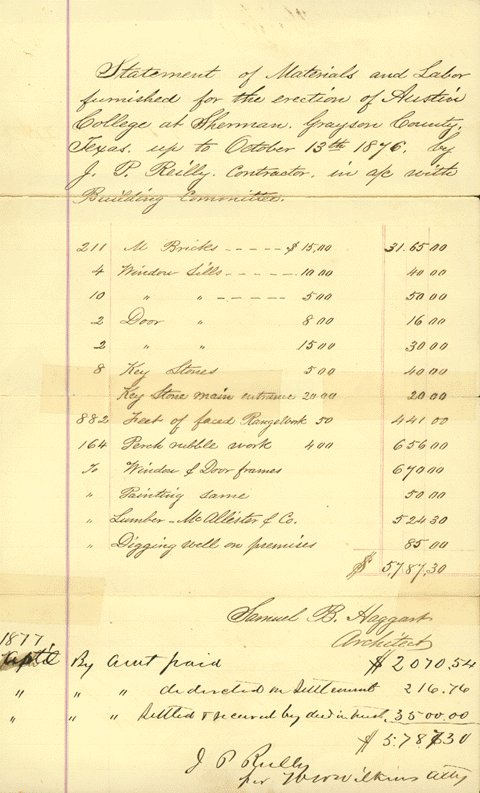 Statement of Materials and Labor
furnished for the erection of Austin
College at Sherman. Grayson County.
Texas. up to October 13th 1876. by
J. P. Reilly. Contractor. in a/c with
Building Committee.
211 M Bricks - - - - - $ 15.00 31.65.00
4 Window Sills - - - - - 10.00 40.00
10 " " - - - - - - 5.00 50.00
2 Door " 8.00 16.00
2 " " 15.00 30.00
8 Key Stones 5.00 40.00
Key Stone main entrance 20.00 20.00
882 Feet of faced Rangework 50 441.00
164 Perch rubble work 4.00 656.00
To Window & Door frames 670.00
" Painting same 50.00
" Lumber - McAllister & Co. 524.30
" Digging well on premises 85.00
$ 5,787.30
Samuel B. Haggart
Architect
1877
By amt paid $ 2070.54
" " " deducted on Settlement 216.76
" " " Settled & secured by deed in trust. 3500.00
$ 5.787.30
J P Reilly
per W W Wilkins Atty